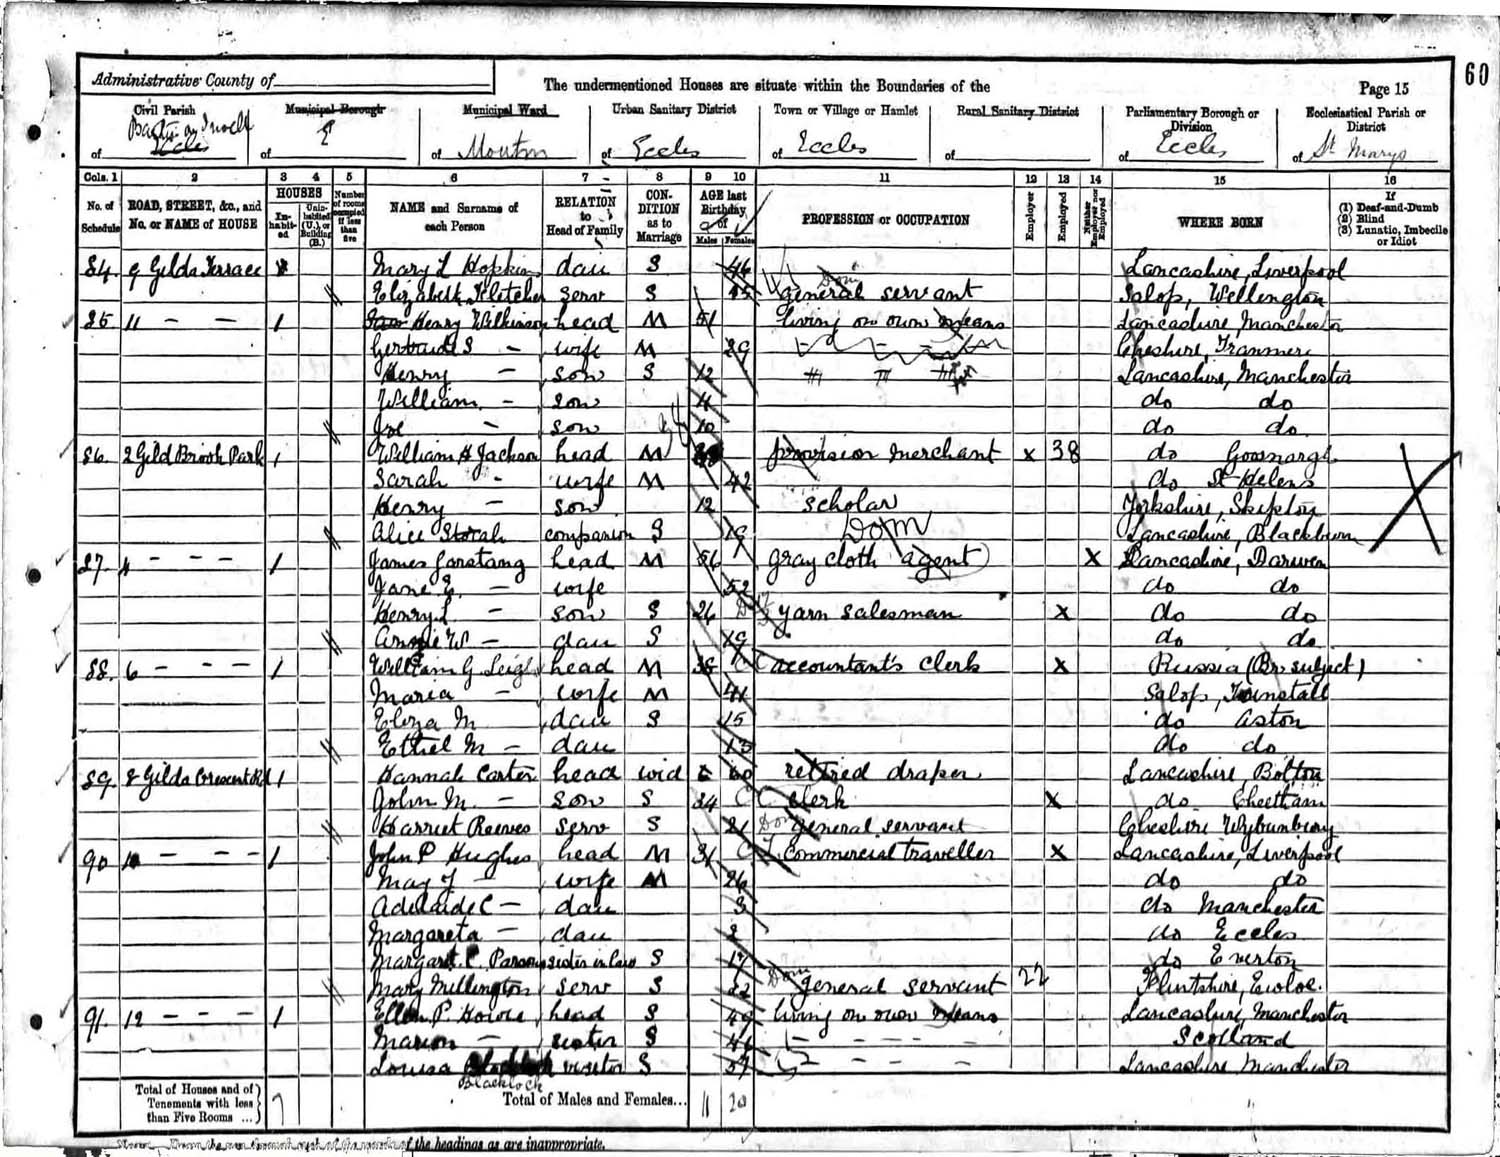 60
Administrative County of
The undermentioned Houses are situate within the Boundaries of the
Page 15
Civil Parish
Municipal Borough
Municipal Ward
Urban Sanitary District
Town or Village or Hamlet
Rural Sanitary District
Parliamentary Borough or Division
Ecclesiastical Parish or District
of Barton on Irwell Eccles
of
of Monton
of Eccles
of Eccles
of
of Eccles
of St Marys
Cols. 1 2 3 4 5 6 7 8 9 10 11 12 13 14 15 16
No. of Schedule
ROAD, STREET, &c., and No. or NAME of HOUSE
HOUSES
In-habit-ed
Unin-habited (U.), or Building (B.)
Number of rooms occupied if less than five
NAME and Surname of each Person
RELATION to Head of Family
CON-DITION as to Marriage
AGE last Birthday of
Males Females
PROFESSION or OCCUPATION
Employer
Employed
Neither Employer nor Employed
WHERE BORN
If
(1) Deaf-and-Dumb
(2) Blind
(3) Lunatic, Imbecile or Idiot
84. 9 Gilda Terrace Mary L Hopkins dau S 46 Lancashire, Liverpool
Elizabeth Fletcher serv S 45 general servant Dom Salop, Wellington
85 11 - - 1 Henry Wilkinson head M 51 living on own means Lancashire, Manchester
Gertrude S - wife M 29 Cheshire, Tranmere
Henry - son S 12 Lancashire, Manchester
William - son 11 do do
Joe - son 10 do do
86. 2 Gild Brook Park 1 William H Jackson head M provision merchant x 38 do Goosnargh
Sarah - wife M 42 do St Helens
Henry - son 12 scholar Yorkshire, Skipton
Alice Storah companion S 19 Dom Lancashire, Blackburn
87. 4 - - - 1 James Garstang head M 56 gray cloth agent X Lancashire, Darwen
Jane E. - wife 52 do do
Henry L - son S 26 yarn salesman x do do
Annie W - dau S 19 do do
88. 6 - - - 1 William G. Leigh head M 38 accountant's clerk x Russia (Br. subject)
Maria - wife M 41 Salop, Tunstall
Eliza M dau S 15 do Aston
Ethel M - dau 13 do do
89. 8 Gilda Crescent Rd 1 Hannah Carter head wid 60 retired draper Lancashire, Bolton
John M. - son S 34 C clerk x do Cheetham
Harriet Reeves serv S 21 Dom general servant Cheshire Wybunbury
90 10 - - - 1 John P Hughes head M 31 C T commercial traveller x Lancashire, Liverpool
May J - wife M 26 do do
Adelaide C - dau 3 do Manchester
Margareta - dau 2 do Eccles
Margaret C. Parsons sister in law S 17 do Everton
Mary Millington serv S 22 Dom general servant 22 Flintshire, Ewloe.
91. 12 - - - 1 Ellen P. Howe head S 49 living on own means Lancashire, Manchester
Marion - sister S 46 - - - - Scotland
Louisa Blacklock visitor S 57 - - - - Lancashire Manchester
Total of Houses and of Tenements with less than Five Rooms ... 7
Total of Males and Females... 11 20
of the headings as are inappropriate.